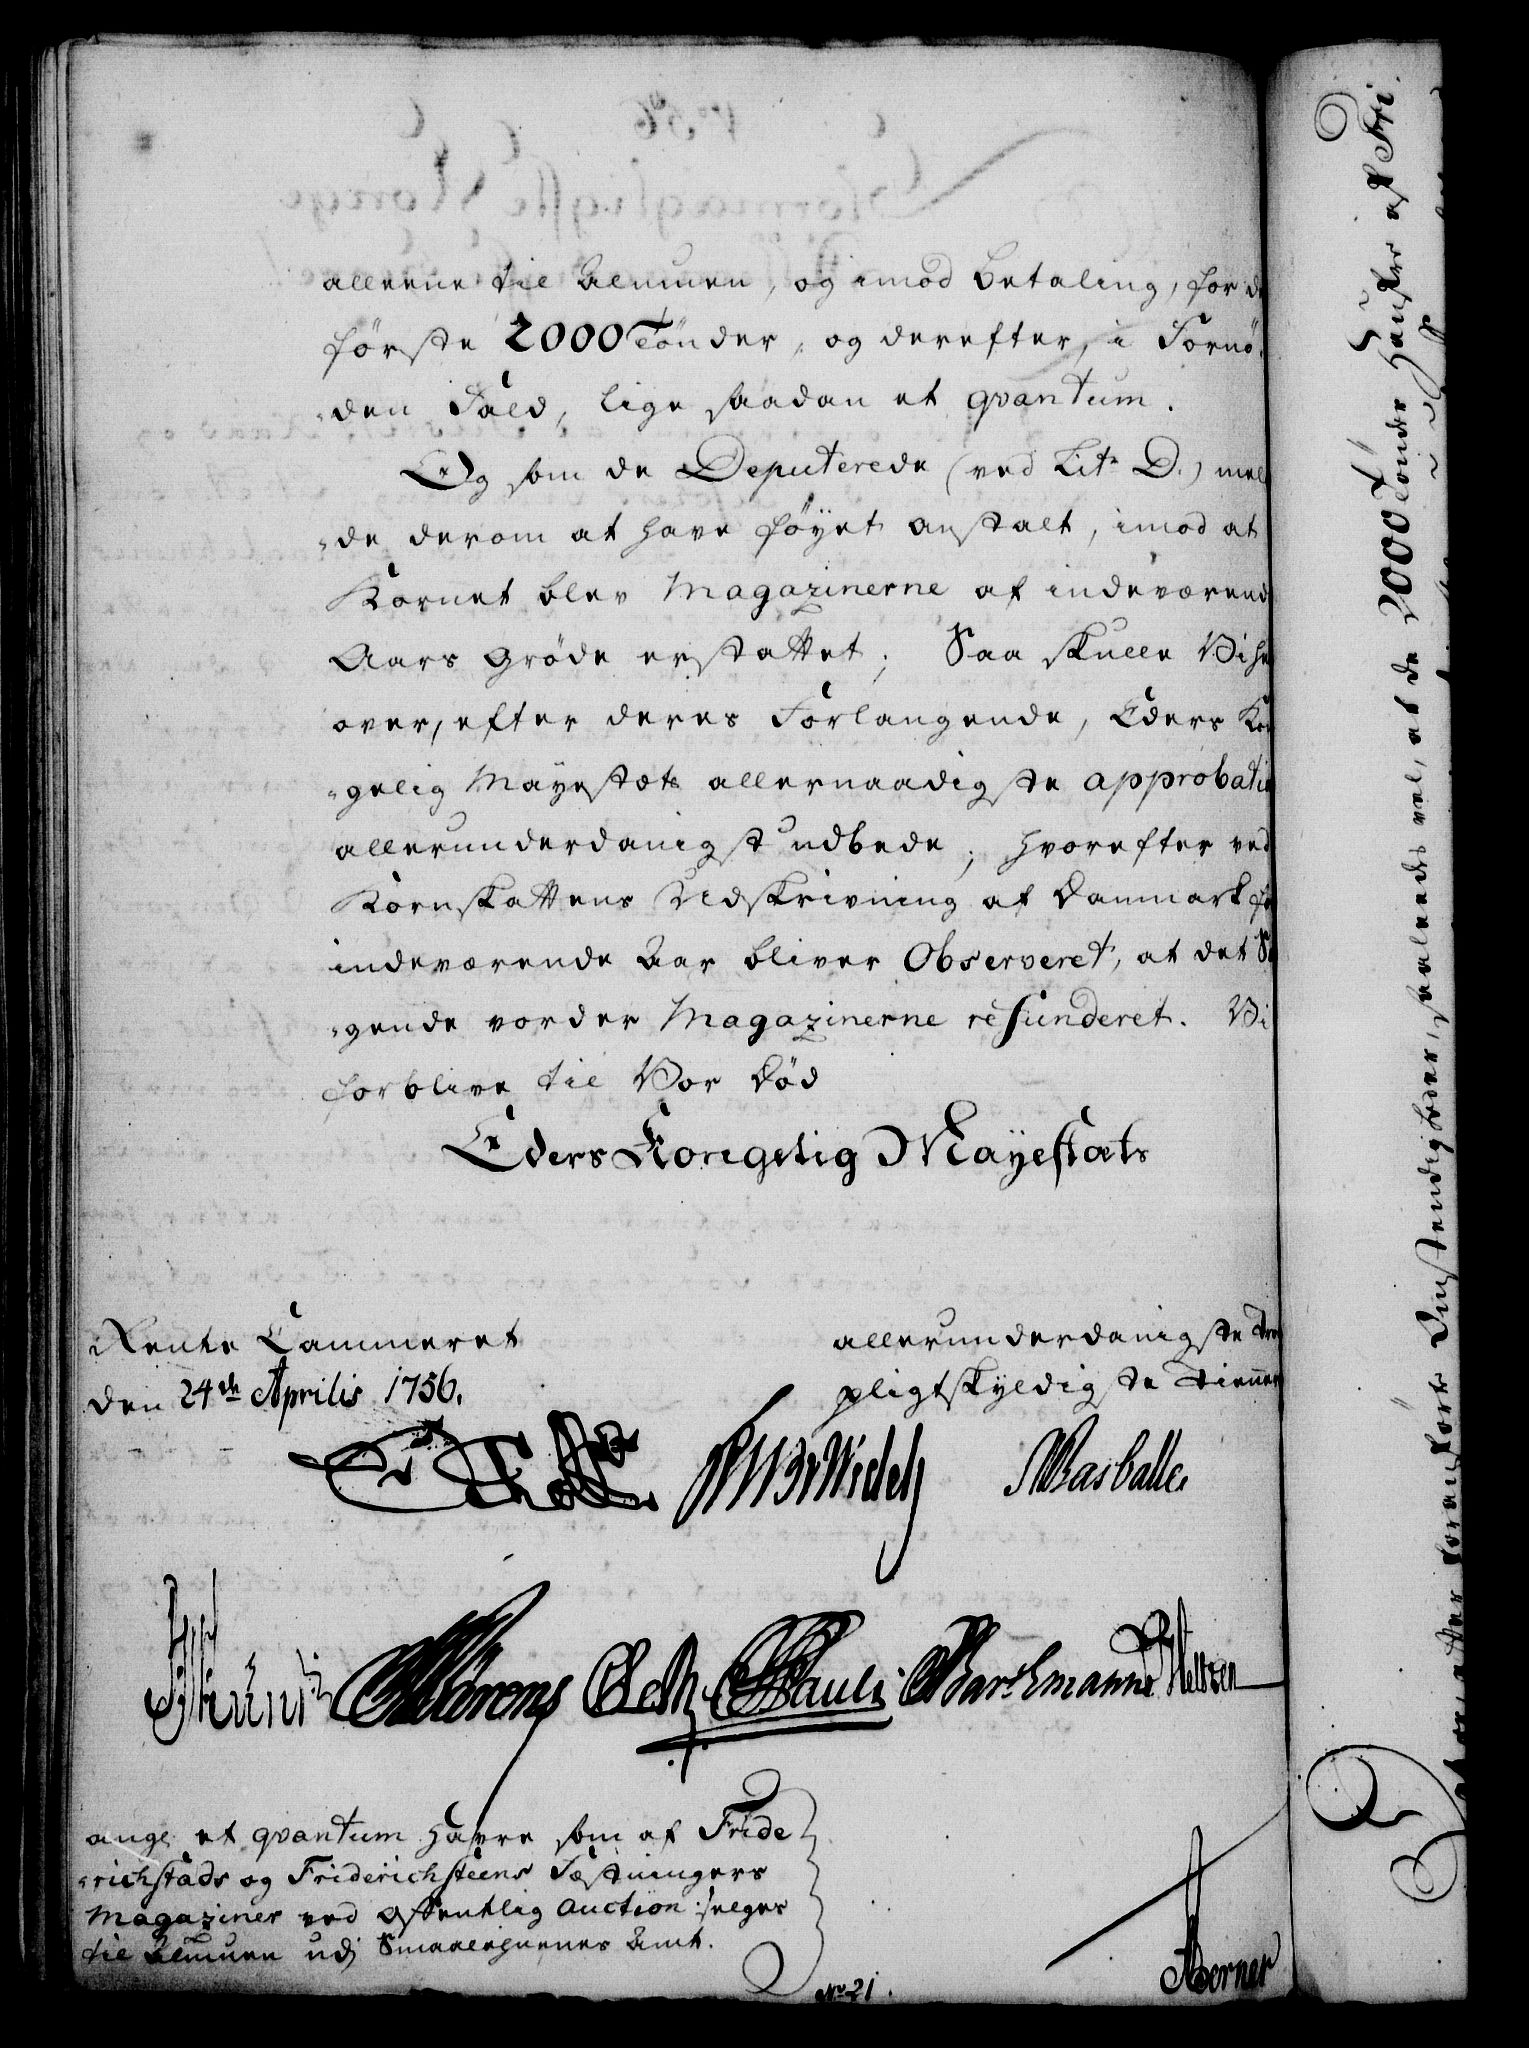 allene til Almuen, og imod Betaling, for de
første 2000 Tønder, og derefter, i Fornø-
„den Fald, lige saadan et qvantum.
Og som de Deputerede (ved Litr D.) mel
„de derom at have føyet anstalt, imod at
Kornet blev Magazinerne af indeværend
Aars Grøde erstattet; Saa skulle Vi he
over, efter deres Forlangende, Eders Kon
„gelig Mayestæts allernaadigste approbatio
allerunderdanigst udbede; hvorefter ved
Kornskattens Udskrivning af Danmark fo
indeværende Aar bliver Observeret, at det
„gende vorder Magazinerne refunderet. Vi
forblive til Vor Død
Eders Kongelig Mayestæts
Rente Cammeret
den 24de Aprilis 1756.
allerunderdanigste Tro
pligtskyldigste Tienner
Pauli Barthmann
ang: et qvantum Havre som af Fride
„richstads og Friderichsteens Fæstningers
Magaziner ved offentlig Auction selges
til Almuen udj Smaalehnenes Amt.
No 21.
Berner
2000 Tønder Haufer af Fri
saaleedes vel, at de
Omstendigheder,